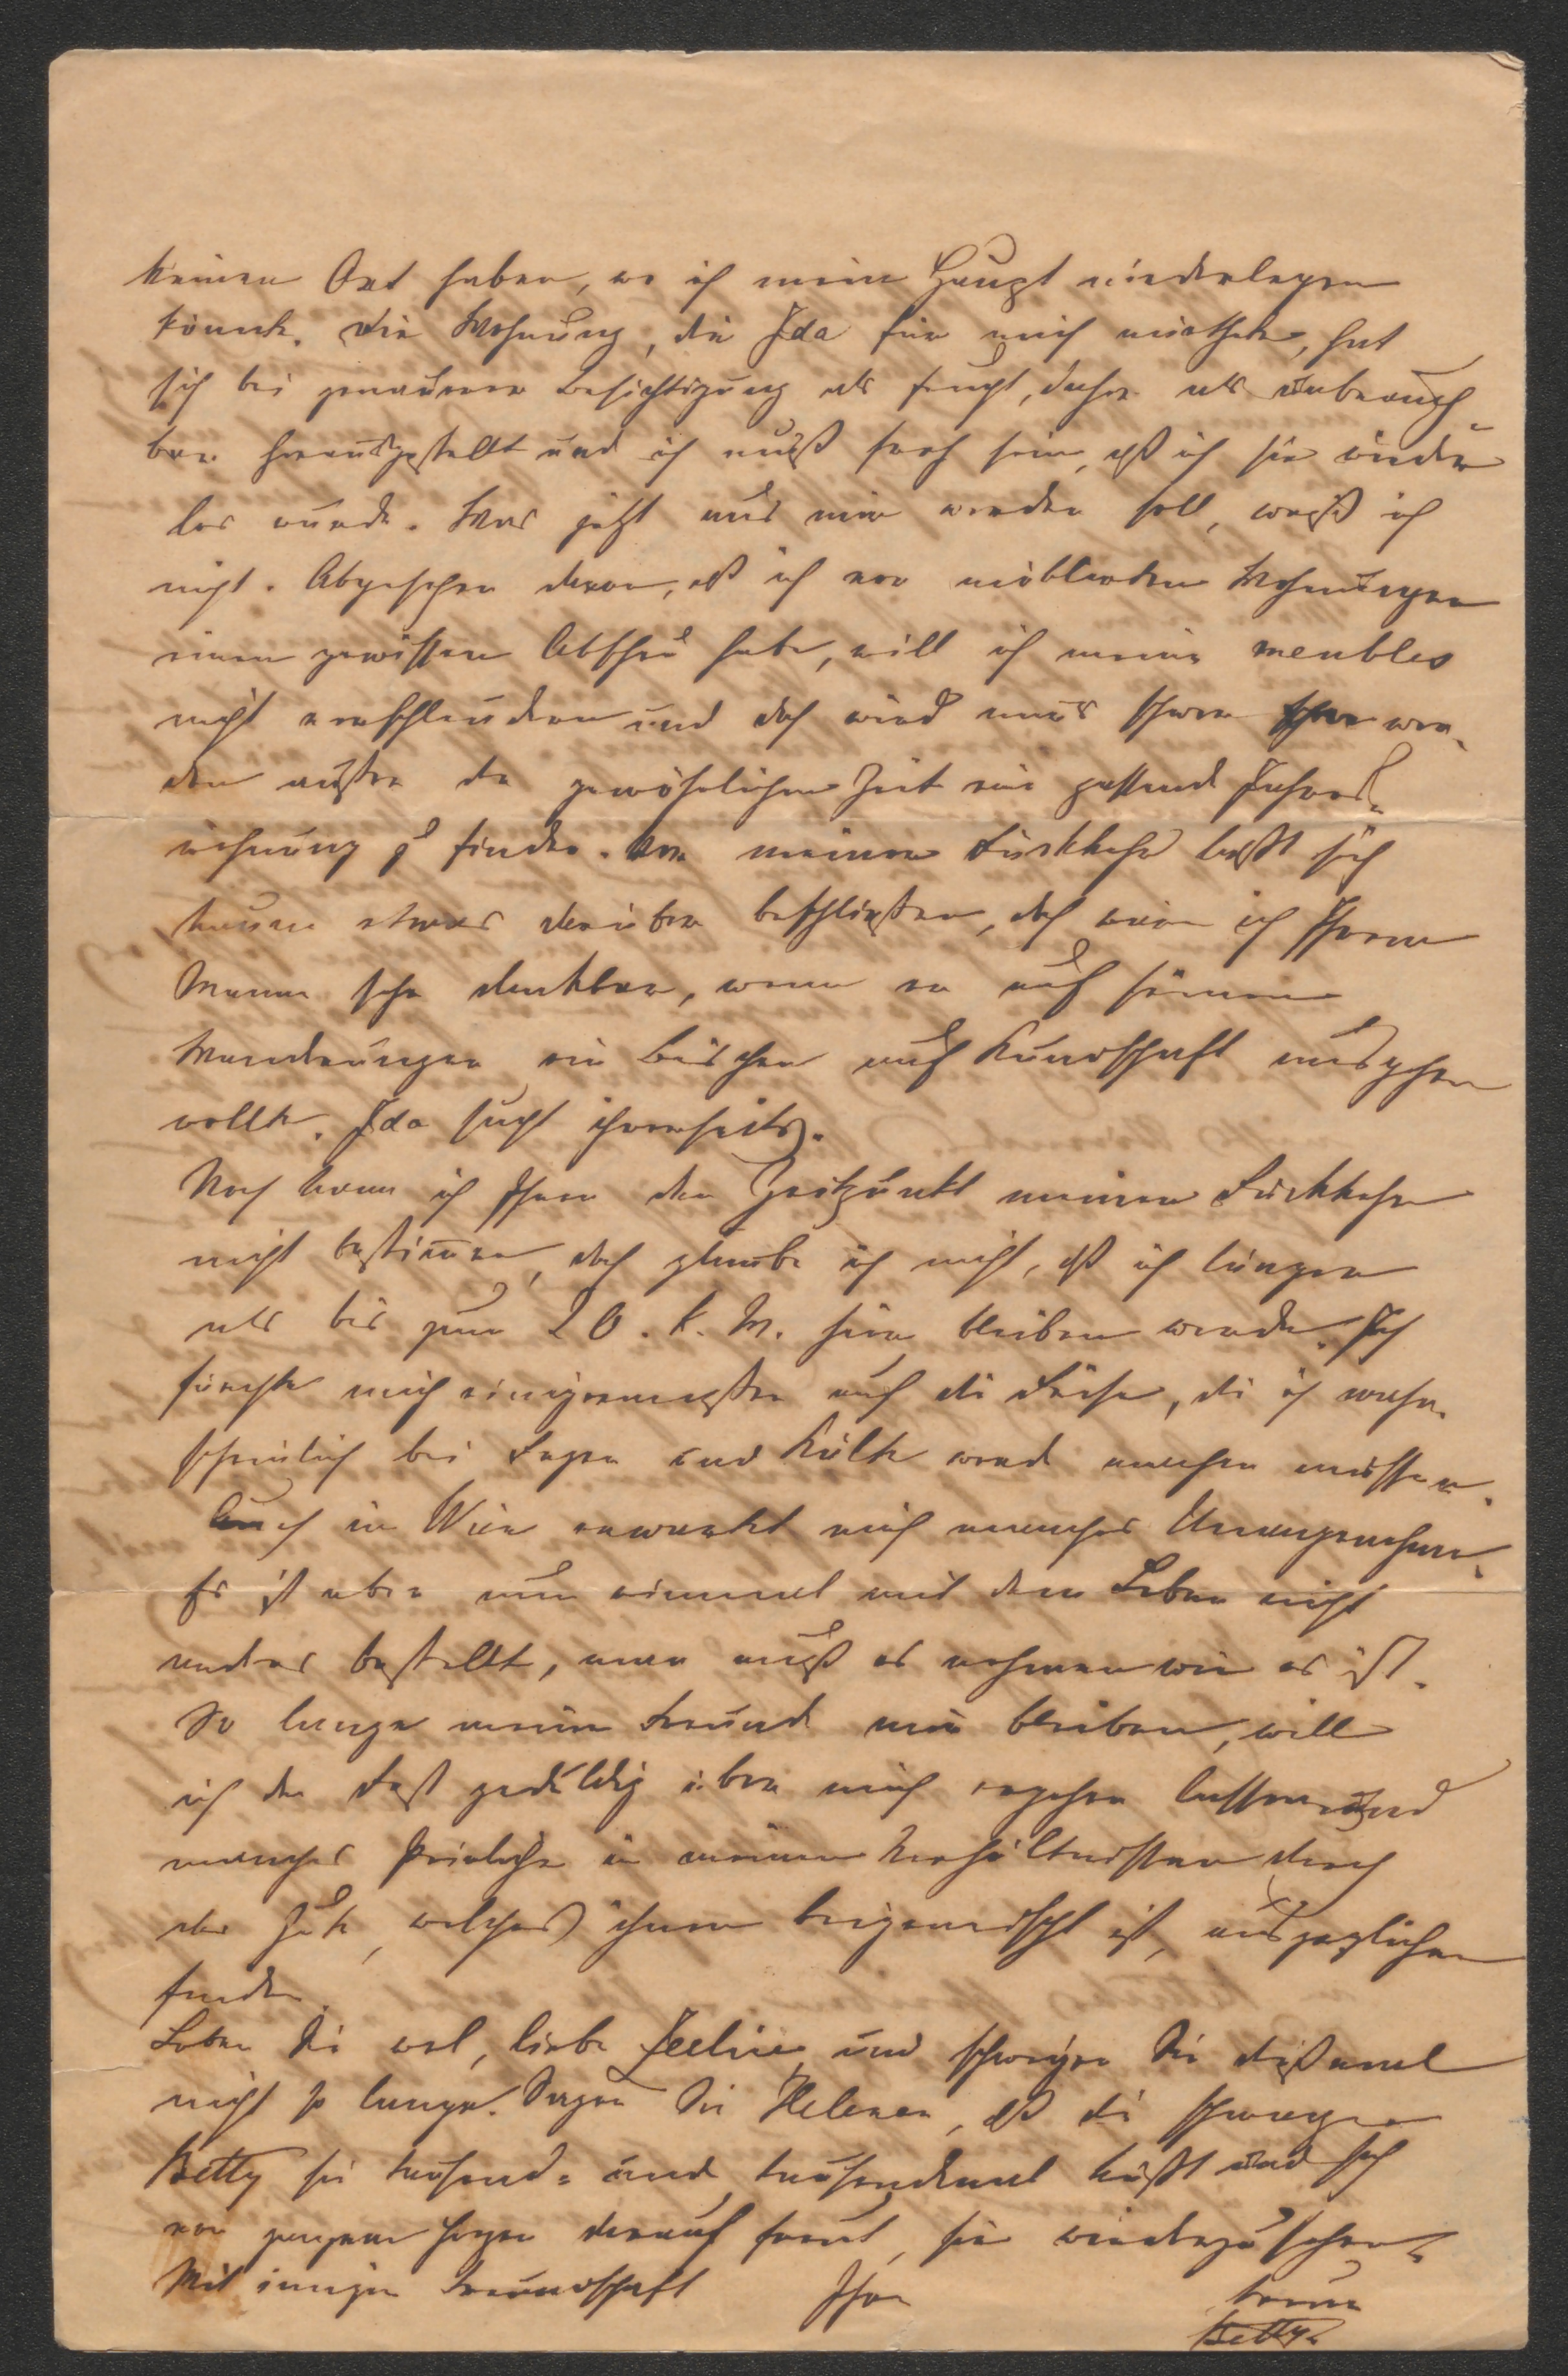 keinen Ort haben, wo ich mein Haupt niederlegen
könnte. Die Wohnung, die Ida für mich miethete, hat
sich bei genauerer Besichtigung als feucht, daher als unbrauch-
bar herausgestellt und ich muß froh sein, daß ich sie wieder
los wurde. Was jetzt aus mir werden soll, weiß ich
nicht. Abgesehen davon, daß ich vor möblierten Wohnungen
einen gewissen Abscheu habe, will ich meine meubles
nicht verschleudern und doch wird mir's schwer wer-
den außer der gewöhnlichen Zeit eine passende Jahres-
wohnung zu finden. Vor meiner Rückkehr läßt sich
kaum etwas darüber beschließen, doch wäre ich Ihrem
Manne sehr dankbar, wenn er auf seinen
Wanderungen ein Bischen auf Kundschaft ausgehen
wollte. Ida sucht ihrerseits.
Noch kann ich Ihnen den Zeitpunkt meiner Rückkehr
nicht bestimen, doch glaube ich nicht, daß ich länger
als bis zum 20. k. M. hier bleiben werde. Ich
fürchte mich einigermaßen auf die Reise, die ich wahr-
scheinlich bei Regen und Kälte werde machen müssen.
Auch in Wien erwartet mich manches Unangenehme.
Es ist aber nun einmal mit dem Leben nicht
anders bestellt, man muß es nehmen wie es ist.
So lange meine Freunde mir bleiben, will
ich den Rest geduldig über mich ergehen lassen und
manches Peinliche in meinen Verhältnissen durch
das Gute, welches ihnen beigemischt ist, ausgeglichen
finden.
Leben Sie wol, liebe und schweigen Sie dießmal
nicht so lange. Sagen Sie Helenen, daß die
Betty sie tausend- und tausendmal küßt und sich
von ganzem Herzen darauf freut, sie wiederzusehen.
Mit inniger Freundschaft Ihre treue
Betty.